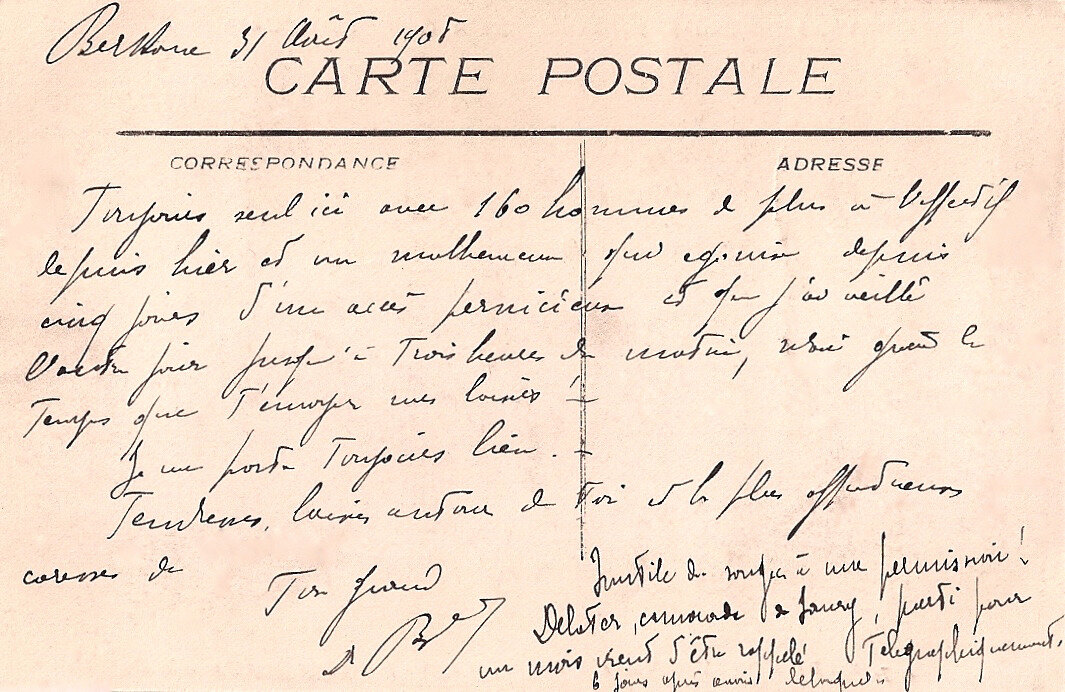 Berkane 31 Août 1908
CARTE POSTALE
CORRESPONDANCE
ADRESSE
Toujours seul ici avec 160 hommes de plus à l'effectif
depuis hier et un malheureux qui agonise depuis
cinq jours d'un accès pernicieux et que j'ai veillé
jusqu'à trois heures du matin, n'ai que le
temps que t'envoyer mes baisers !
Je me porte toujours bien.
Tendresses, baisers autour de toi et les plus affectueuses
caresses de
Ton grand
Inutile de songer à une permission !
Delater, camarade de Jaury, parti pour
un mois vient d'être rappelé Télégraphiquement.
6 jours après avoir